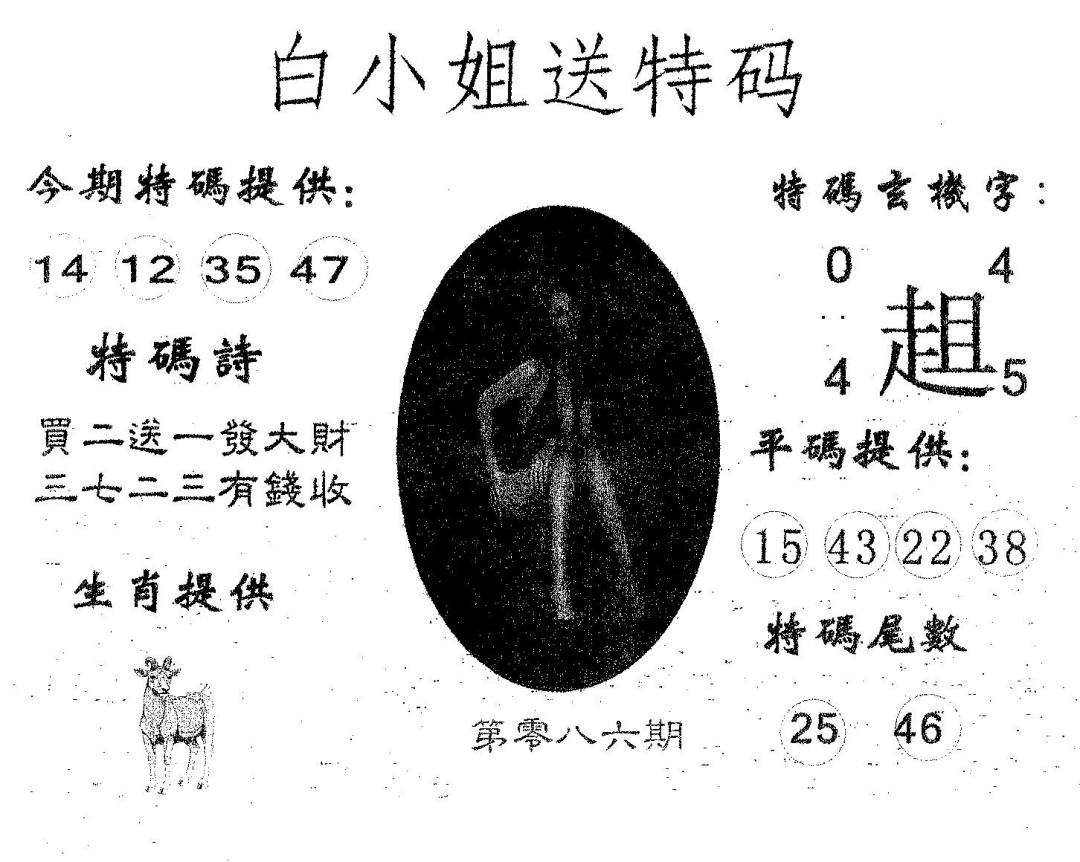 白小姐送特码
今期特碼提供:
14 12 35 47
特碼詩
買二送一發大財
三七二三有錢收
生肖提供
第零八六期
特碼玄機字:
0 4
趄
4 5
平碼提供:
15 43 22 38
特碼尾數
25 46